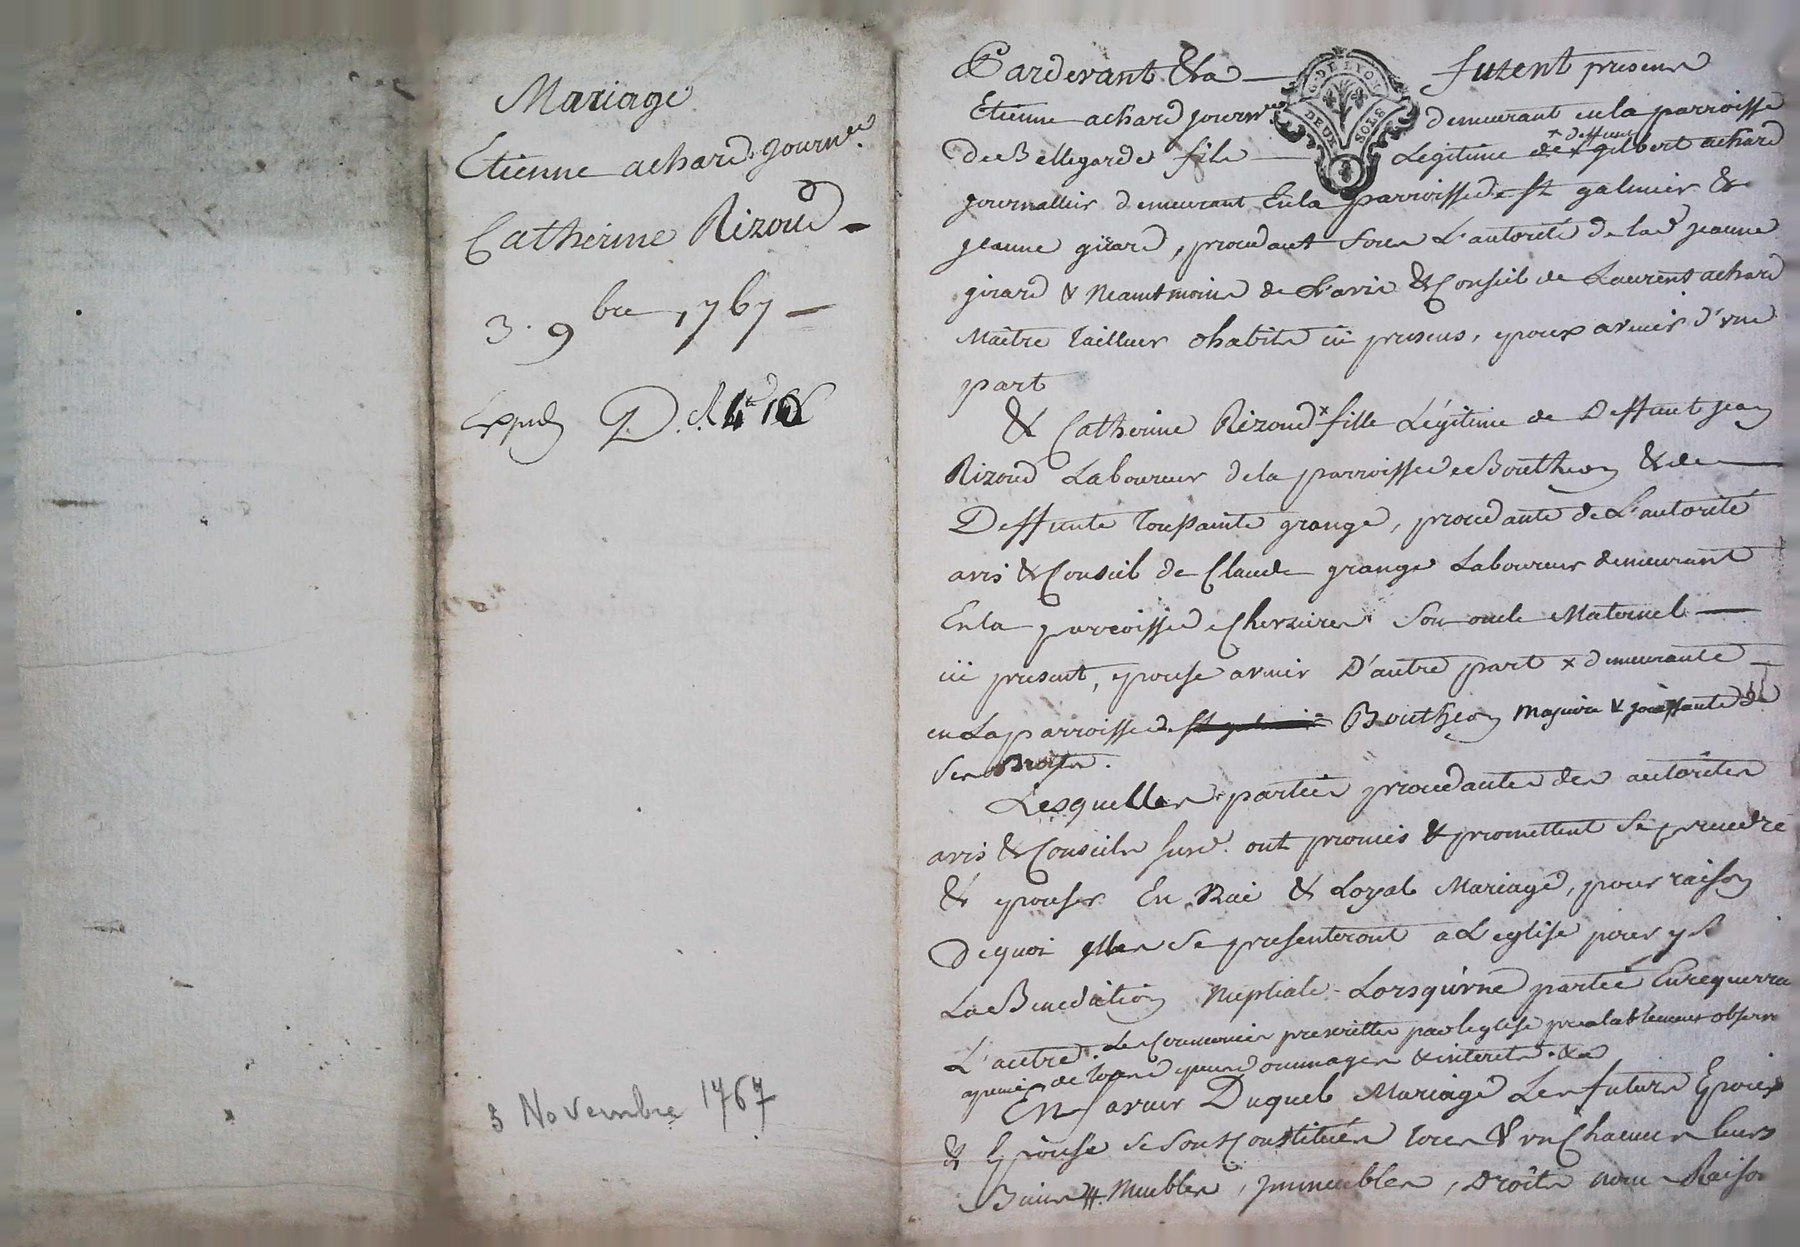 Mariage
Etienne achard journ.
Catherine Rizoud
3. 9bre 1767
Exped
3 Novembre 1767
G. DE LYON
DEUX SOLS
Pardevant &a furent presens
Etienne achard journ demeurant en la parroisse
De Bellegarde fils Legitime de deffunt gilbert achard
journallier demeurant En la parroisse de st galmier &
jeanne girard, procedant sous L'autorité de lad jeanne
girard & Neantmoins de L'avis & Conseil de Laurent achard
Maitre tailleur habita ici presens, epoux avenir d'une
part
& Catherine Rizoud x fille Légitime de Deffunt jean
Rizoud Laboureur de la parroisse de Boutheon & de
Deffunte toussainte grange, procedante de L'autorité
avis & Conseil de Claude grange Laboureur demeurant
En la parroisse de son oncle Maternel
ici present, epouse avenir D'autre part x demeurante
en La parroisse de st galmier Boutheon Majeure & jouissante de
Ses Droits.
Lesquelles parties procedantes des autorités
avis & Conseils susd. ont promis & promettent se prendre
& epouser En vrai & Loyal Mariage, pour raison
De quoi elles se presenteront a L'eglise pour y R
La Benediction Nuptiale Lorsqu'une partie En requerra
L'autre. Les Ceremonies prescrittes par l'eglise prealablement observ
apeine de tous depens dommages & interets. &a
En faveur Duquel Mariage Les futurs Epoux
& Epouse se sont Constitués tous & un Chacun leurs
Biens Meubles, immeubles, Droits noms Raisons